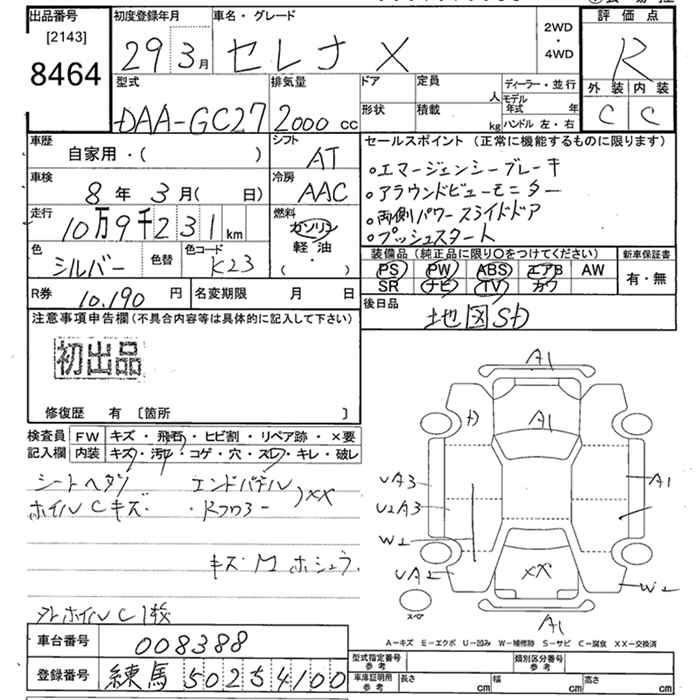 出品番号 初度登録年月 車名・グレード 評価点
[2143] 29 3月 セレナ X 2WD・4WD R
8464
型式 排気量 ドア 定員 人 ディーラー・並行 外装 内装
DAA-GC27 2000 cc 形状 積載 kg モデル年式 年 C C
ハンドル 左・右
車歴 シフト セールスポイント (正常に機能するものに限ります)
自家用・( ) AT ・エマージェンシーブレーキ
車検 冷房 ・アラウンドビューモニター
8年 3月( 日) AAC ・両側パワースライドドア
走行 燃料 ・プッシュスタート
10万9千231km ガソリン
軽・油
・( )
色 色替 色コード 装備品 (純正品に限り○をつけてください) 新車保証書
シルバー K23 PS PW ABS エアB AW 有・無
SR ナビ TV カワ
R券 10,190円 名変期限 月 日 後日品
地図SD
注意事項申告欄(不具合内容等は具体的に記入して下さい)
初出品
修復歴 有 [箇所 ]
検査員 FW キズ・飛石・ヒビ割・リペア跡・×要
記入欄 内装 キズ・汚・コゲ・穴・スレ・キレ・破レ
シートヘタリ エンドパネル
ホイルCキズ ・Rフロアー )XX
キズM ホシュラ
A1
A1
UA3 A1
U2A3
W2
UA2 XX W2
スペア A1
A-キズ E-エクボ U-凹み W-補修跡 S-サビ C-腐食 XX-交換済
車台番号 008388
登録番号 練馬 502 5 4100
型式指定番号 参考 類別区分番号 参考
車庫証明用 参考 長さ cm 幅 cm 高さ cm